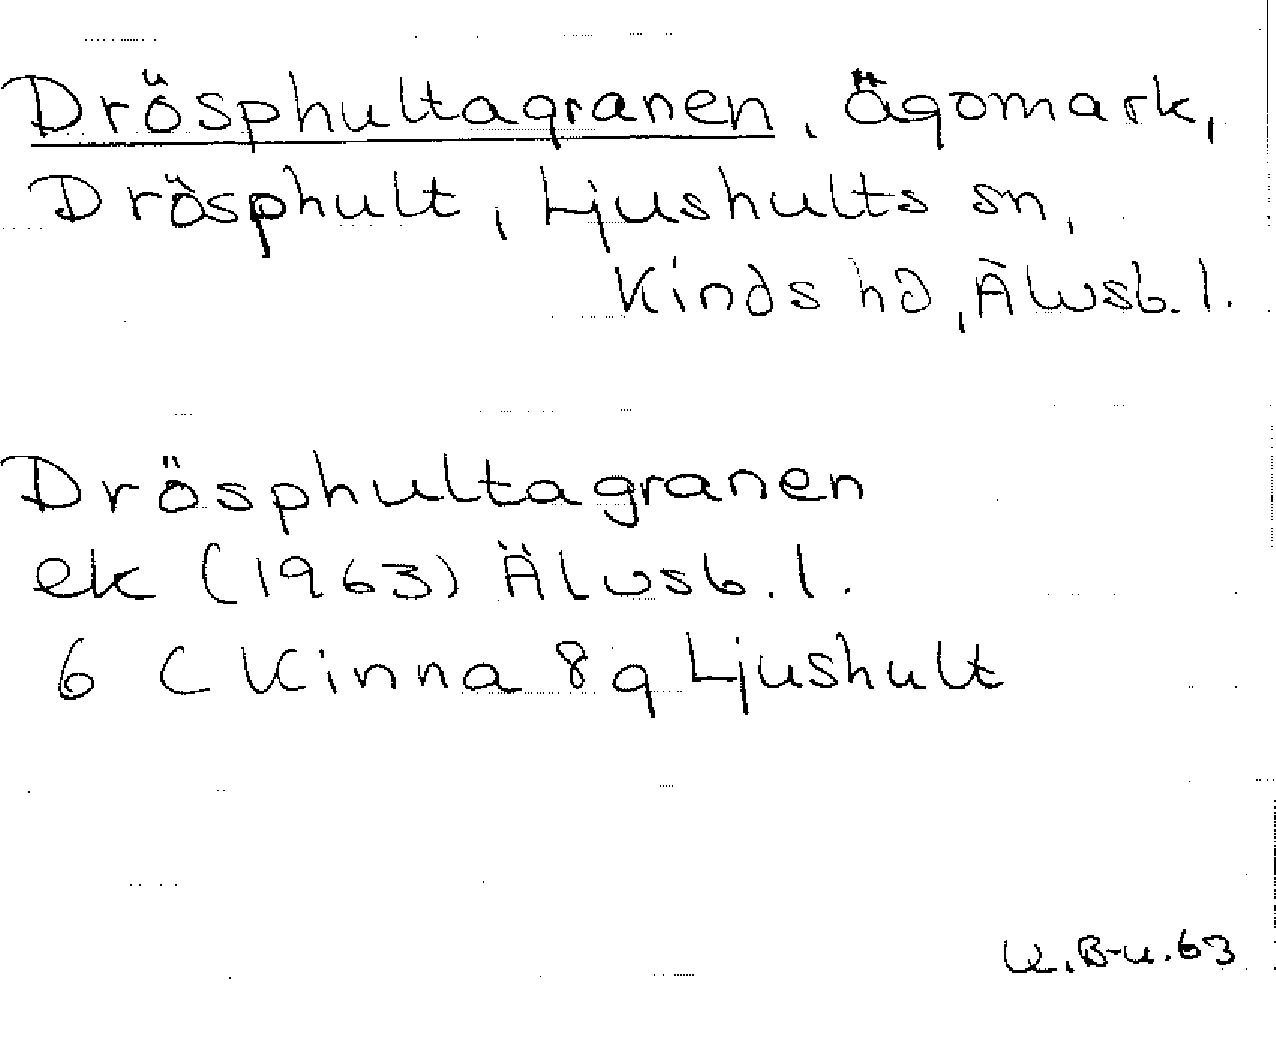 Drösphultagranen, Ägomark,
Drösphult, Ljushults sn,
Kinds hd, Älvsb. l.
Drösphultagranen
ek (1963) Älvsb. l.
6 C Kinna 8 g Ljushult
K.B-u.63